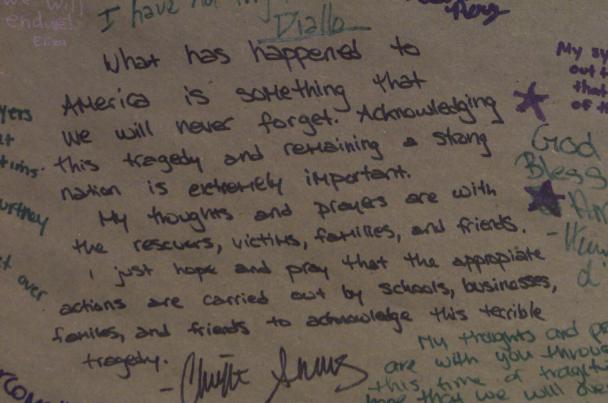 will
endure!
I have not
Diallo
What has happened to
America is something that
we will never forget. Acknowledging
this tragedy and remaining a strong
nation is extremely important.
My thoughts and prayers are with
the rescuers, victims, families, and friends.
I just hope and pray that the appropiate
actions are carried out by schools, businesses,
familes, and friends to acknowledge this terrible
tragedy.
My
out
that
of
God
Bless
My thoughts and
are with you
this time of
hope that we will
over